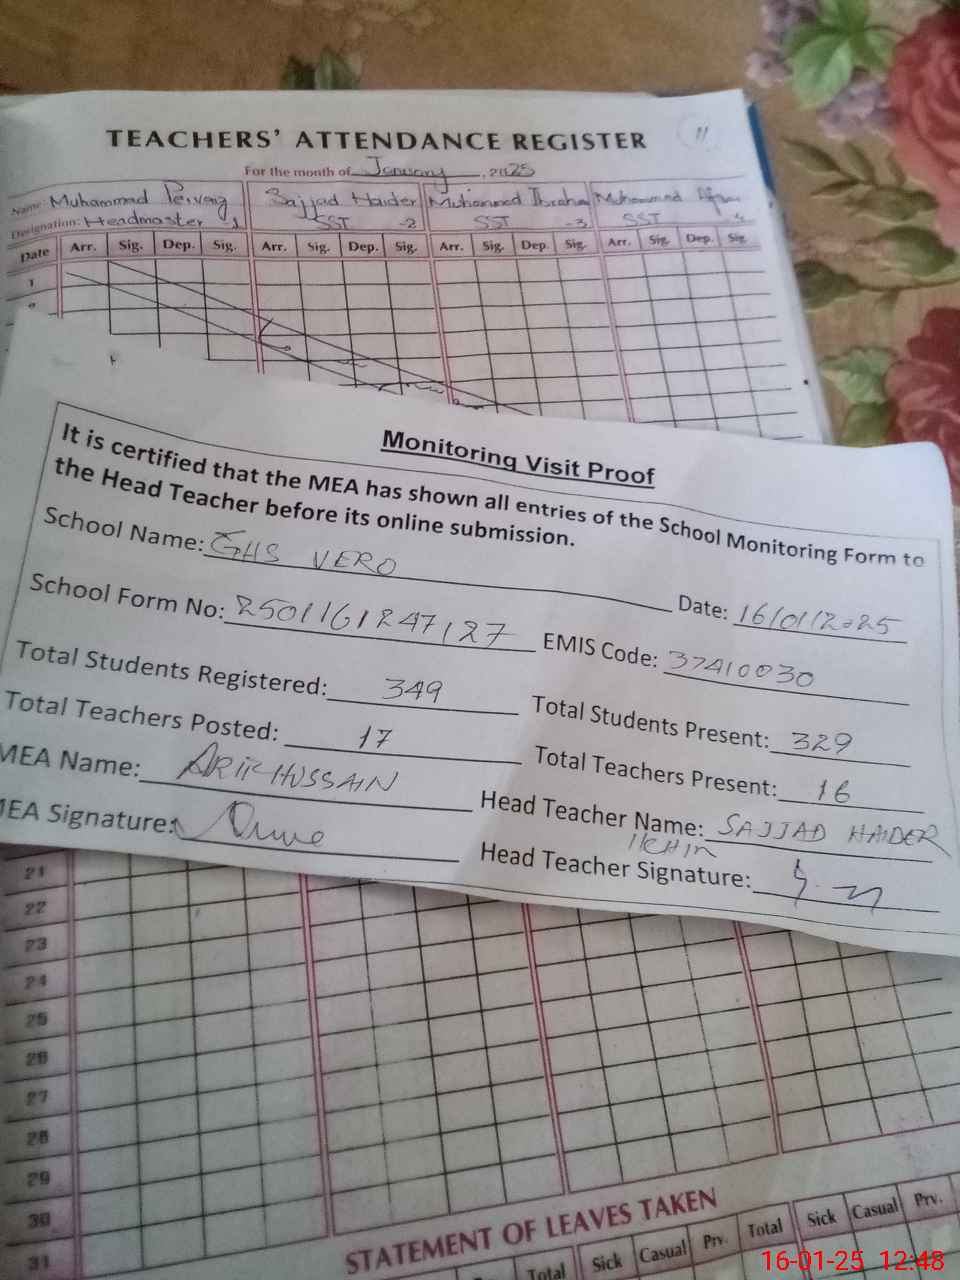 TEACHERS' ATTENDANCE REGISTER
11
For the month of January, 2025
Name: Muhammad Pervaiz Sajjad Haider Muhammad Ibrahim Muhammad
Designation: Headmaster 1 SST -2 SST -3 SST
Date Arr. Sig. Dep. Sig. Arr. Sig. Dep. Sig. Arr. Sig. Dep. Sig. Arr. Sig. Dep. Sig
1
Monitoring Visit Proof
It is certified that the MEA has shown all entries of the School Monitoring Form to
the Head Teacher before its online submission.
School Name: GHS VERO Date: 16/01/2025
School Form No: 2501161247127 EMIS Code: 37410030
Total Students Registered: 349 Total Students Present: 329
Total Teachers Posted: 17 Total Teachers Present: 16
MEA Name: ARIF HUSSAIN Head Teacher Name: SAJJAD HAIDER
MEA Signature: Head Teacher Signature:
21
22
23
24
25
26
27
28
29
30
31
STATEMENT OF LEAVES TAKEN
Total Sick Casual Prv. Total Sick Casual Prv.
16-01-25 12:48